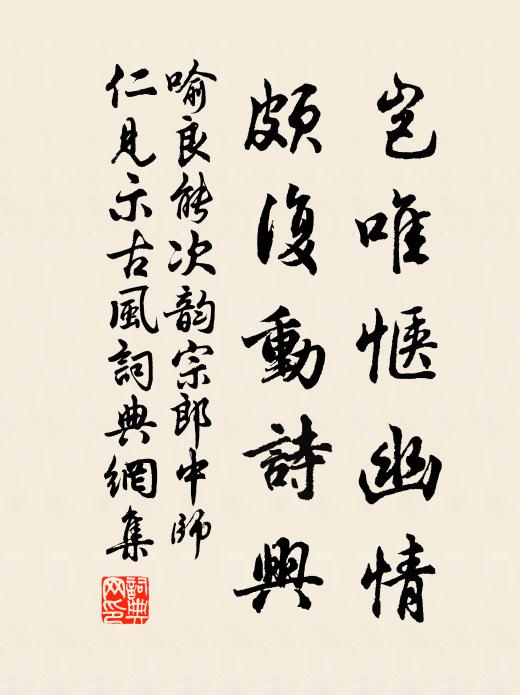 豈唯愜幽情
頗復動詩興
喻良能次韵宗郎中師
仁見示古風詞典網集
詞典網印